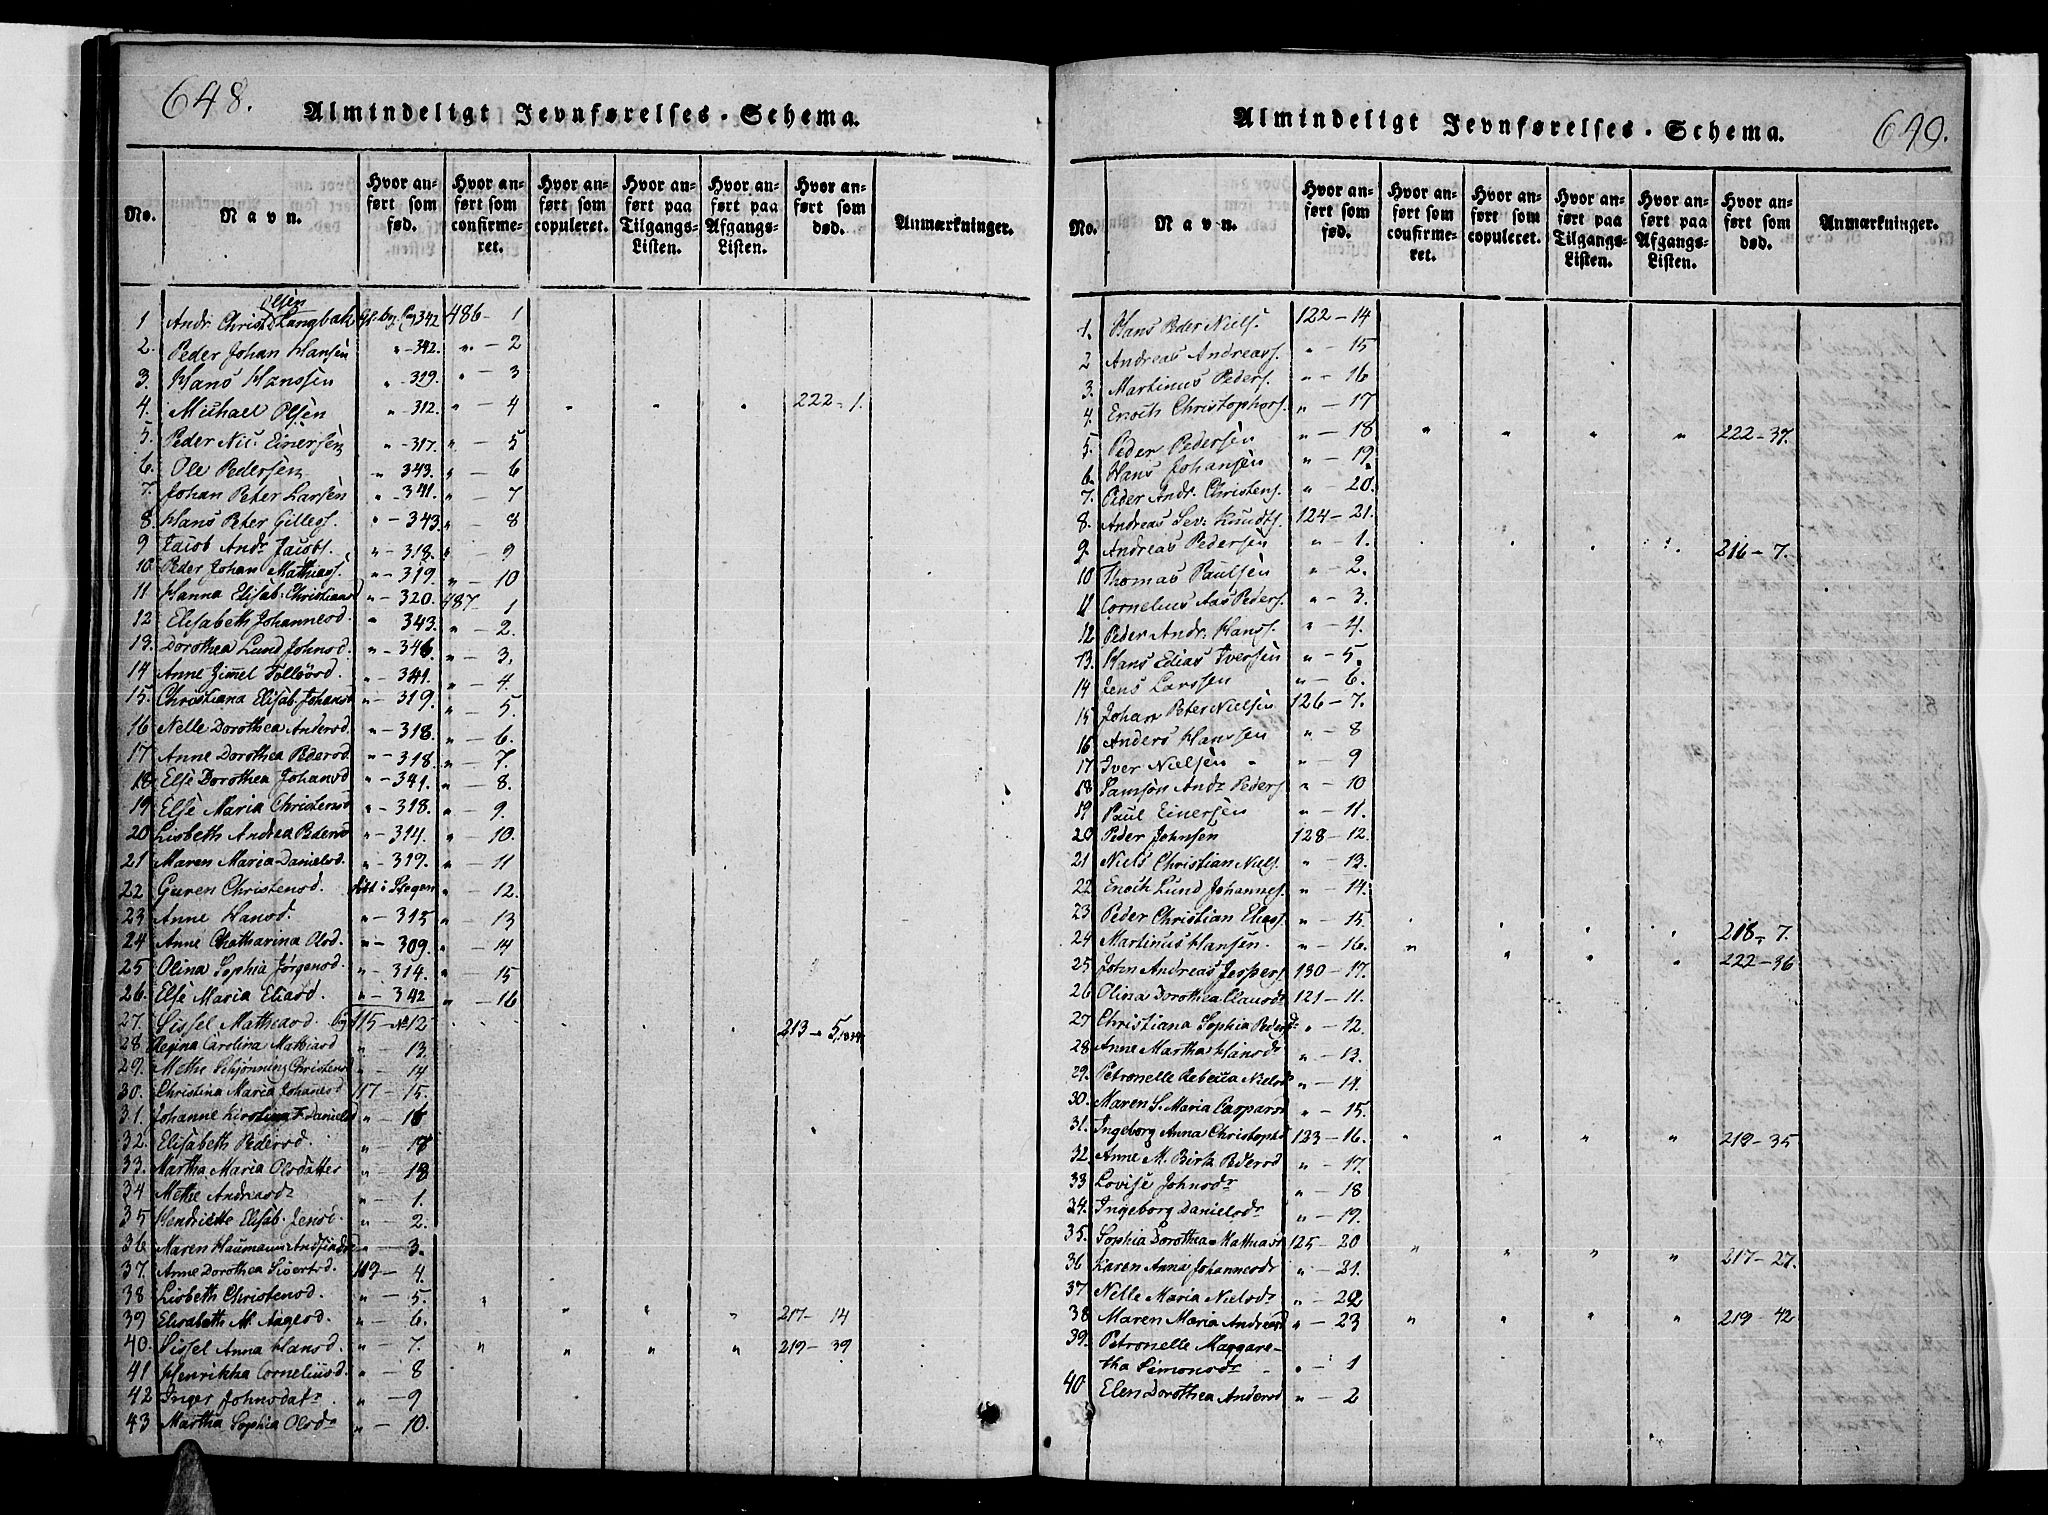 648.
Almindeligt Jevnførelses-Schema.
No.
Navn.
Hvor anført som fød.
Hvor anført som confirmeret.
Hvor anført som copuleret.
Hvor anført paa Tilgangs-Listen.
Hvor anført paa Afgangs-Listen.
Hvor anført som død.
Anmærkninger.
Olsen
1 Andr Christ Langbak Gl. Bog Pag 342 486-1
2. Peder Johan Hansen " -342. " -2
3. Hans Hanssen " -319. " -3
4. Michael Olsen " -312. " -4 " " " 222-1.
5. Peder Nic. Einersen " -317. " -5
6. Ole Pedersen " 343. " -6
7. Johan Peter Larsen " -341. " -7
8. Hans Peter Gillegs. " -343. " -8
9 Jacob Andr. Jacobs. " -318. " -9
10. Peder Johan Mathiass. " -319. " -10
11 Hanna Elisab. Christiansd " -320. 487-1
12 Elisabeth Johannesd. " 343. " -2.
13. Dorothea Lund Johnsd. " -346. " -3.
14 Anne Zimel Tollssørd. " -341. " -4.
15. Christiana Elisab. Johansd " -319. " -5.
16 Nelle Dorothea Andersd. " -318. " -6.
17 Anne Dorothea Pedersd. " -318. " -7.
18 Else Dorothea Johansd " -341. " -8.
19 Else Maria Christensd " -318. " -9.
20 Lisbeth Andrea Pedersd " -314. " -10.
21 Maren Maria Danielsd. " -319. " -11
22 Guren Christensd. Født i Stegen " -12.
23 Anne Hansd. " -315 " -13
24 Anne Chatharina Olsd. " -309. " -14
25 Olina Sophia Jørgensd. " -314. " -15
26. Else Maria Eliasd. " -342 " -16
27. Sissel Matheasd. Pag 115-No 12 " " " " 213-5/1834
28. Regina Carolina Mathiasd " -13.
29. Methe Schjønning Christensd " -14
30. Christina Maria Johansd 117-15.
31. Johanne Kirstina F. Danielsd " -16
32. Elisabeth Pedersd. " -17
33. Martha Maria Olsdatter " -18
34 Methe Andreasdr " -1.
35 Hendrikke Elisab. Jensd. " -2.
36 Maren Haumann Andsindr " -3.
37. Anne Dorothea Sivertsd. 119-4.
38 Lisbeth Christensd. " -5
39 Elisabeth M. Aagesd. " -6. " " " " 217-14
40. Sissel Anna Hansd. " -7. " " " " 219-39
41 Henrikka Corneliusd. " -8
42 Inger Johnsdatr " -9
43 Martha Sophia Olsdr " -10.
Almindeligt Jevnførelses-Schema.
649.
No.
Navn.
Hvor anført som fød.
Hvor anført som confirmeret.
Hvor anført som copuleret.
Hvor anført paa Tilgangs-Listen.
Hvor anført paa Afgangs-Listen.
Hvor anført som død.
Anmærkninger.
1. Hans Peder Niels. 122-14
2 Andreas Andreass. " -15
3. Martinus Peders. " -16
4. Enoch Christophers. " -17
5. Peder Pedersen " -18 " " " " 222-37.
6. Hans Johansen " -19
7. Peder Andr. Christens. " -20.
8. Andreas Sev. Knudts. 124-21.
9. Andreas Pedersen " -1. 216-7.
10 Thomas Paulsen " -2.
11 Cornelius Aas Peders. " -3.
12 Peder Andr. Hanss. " -4.
13. Hans Elias Iversen " -5.
14 Jens Larssen " -6.
15 Johan Peter Nielsen 126-7.
16 Anders Hanssen " -8
17 Iver Nielsen " -9
18 Samson Andr. Peders " -10
19 Paul Einersen " -11.
20 Peder Johnsen 128-12.
21 Niels Christian Niels. " -13.
22 Enoch Lund Johannes. " -14.
23 Peder Christian Eliass. " -15. 218-7.
24 Martinus Hansen. " -16. " " " " 222-36
25. John Andreas Jespers. 130-17.
26 Olina Dorothea Clausdr 121-11.
27 Christiana Sophia Pedersdr " -12.
28 Anne Martha Hansdr " -13.
29. Petronelle Rebecca Nielsd " -14.
30. Maren S. Maria Caspars " -15.
31. Ingeborg Anna Christophsd 123-16. " " " " 219-35
32. Anne M. Birk Pedersd " -17.
33 Lovise Johnsdr " -18
34. Ingeborg Danielsdr " -19.
35. Sophia Dorothea Mathiasr 125-20 " " " " 217-27.
36 Karen Anna Johannesdr " -21.
37 Nelle Maria Nielsdr " -22
38 Maren Maria Andreasd " -23 " " " " 219-42
39. Petronelle Maggare-
tha Simonsdr " -1
40 Elen Dorothea Andersd " -2